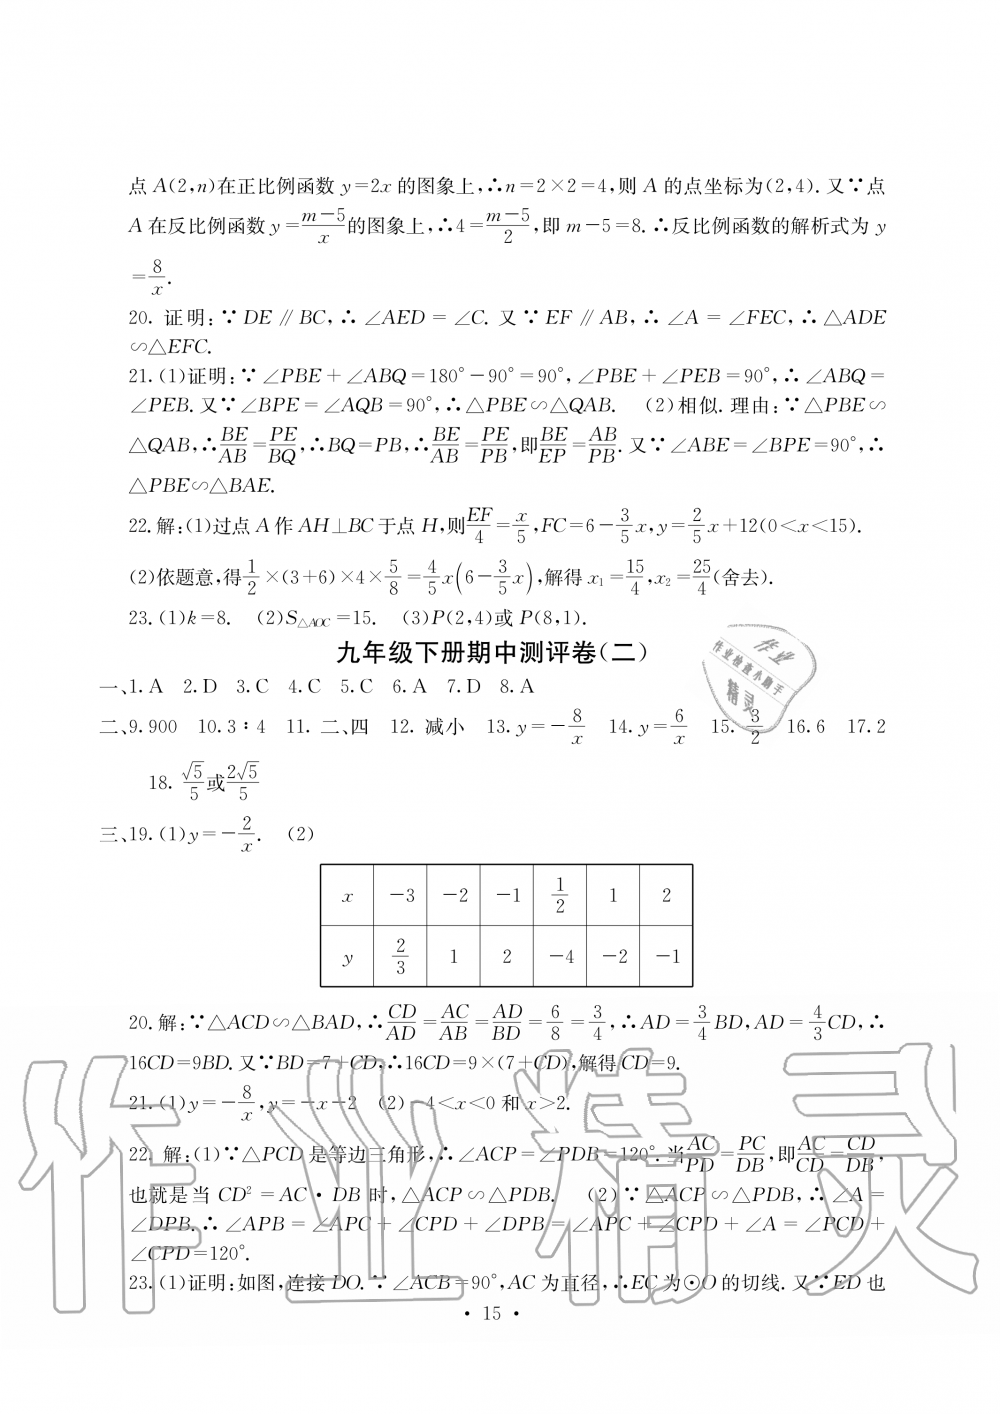 点 A(2,n)在正比例函数 y=2x 的图象上,∴n=2×2=4,则 A 的点坐标为(2,4). 又∵点
A 在反比例函数 y=\frac{m-5}{x}的图象上,∴4=\frac{m-5}{2},即 m-5=8. ∴反比例函数的解析式为 y
=\frac{8}{x}.
20. 证明:∵DE∥BC,∴∠AED=∠C. 又∵EF∥AB,∴∠A=∠FEC,∴△ADE
∽△EFC.
21. (1)证明:∵∠PBE+∠ABQ=180°-90°=90°,∠PBE+∠PEB=90°,∴∠ABQ=
∠PEB. 又∵∠BPE=∠AQB=90°,∴△PBE∽△QAB. (2)相似. 理由:∵△PBE∽
△QAB,∴\frac{BE}{AB}=\frac{PE}{BQ},∴BQ=PB,∴\frac{BE}{AB}=\frac{PE}{PB},即\frac{BE}{EP}=\frac{AB}{PB}. 又∵∠ABE=∠BPE=90°,∴
△PBE∽△BAE.
22. 解:(1)过点 A 作 AH⊥BC 于点 H,则\frac{EF}{4}=\frac{x}{5},FC=6-\frac{3}{5}x,y=\frac{2}{5}x+12(0<x<15).
(2)依题意,得\frac{1}{2}×(3+6)×4×\frac{5}{8}=\frac{4}{5}x(6-\frac{3}{5}x),解得 x₁=\frac{15}{4},x₂=\frac{25}{4}(舍去).
23. (1)k=8. (2)S△AOC=15. (3)P(2,4)或 P(8,1).
九年级下册期中测评卷(二)
一、1. A 2. D 3. C 4. C 5. C 6. A 7. D 8. A
二、9. 900 10. 3∶4 11. 二、四 12. 减小 13. y=-\frac{8}{x} 14. y=\frac{6}{x} 15. \frac{3}{2} 16. 6 17. 2
18. \frac{√5}{5}或\frac{2√5}{5}
三、19. (1)y=-\frac{2}{x}. (2)
x -3 -2 -1 \frac{1}{2} 1 2
y \frac{2}{3} 1 2 -4 -2 -1
20. 解:∵△ACD∽△BAD,∴\frac{CD}{AD}=\frac{AC}{AB}=\frac{AD}{BD}=\frac{6}{8}=\frac{3}{4},∴AD=\frac{3}{4}BD,AD=\frac{4}{3}CD,∴
16CD=9BD. 又∵BD=7+CD,∴16CD=9×(7+CD),解得 CD=9.
21. (1)y=-\frac{8}{x},y=-x-2 (2)-4<x<0 和 x>2.
22. 解:(1)∵△PCD 是等边三角形,∴∠ACP=∠PDB=120°. 当\frac{AC}{PD}=\frac{PC}{DB},即\frac{AC}{CD}=\frac{CD}{DB},
也就是当 CD²=AC·DB 时,△ACP∽△PDB. (2)∵△ACP∽△PDB,∴∠A=
∠DPB. ∴∠APB=∠APC+∠CPD+∠DPB=∠APC+∠CPD+∠A=∠PCD+
∠CPD=120°.
23. (1)证明:如图,连接 DO. ∵∠ACB=90°,AC 为直径,∴EC 为⊙O 的切线. 又∵ED 也
· 15 ·
作业
作业检查小助手
精灵
作业精灵